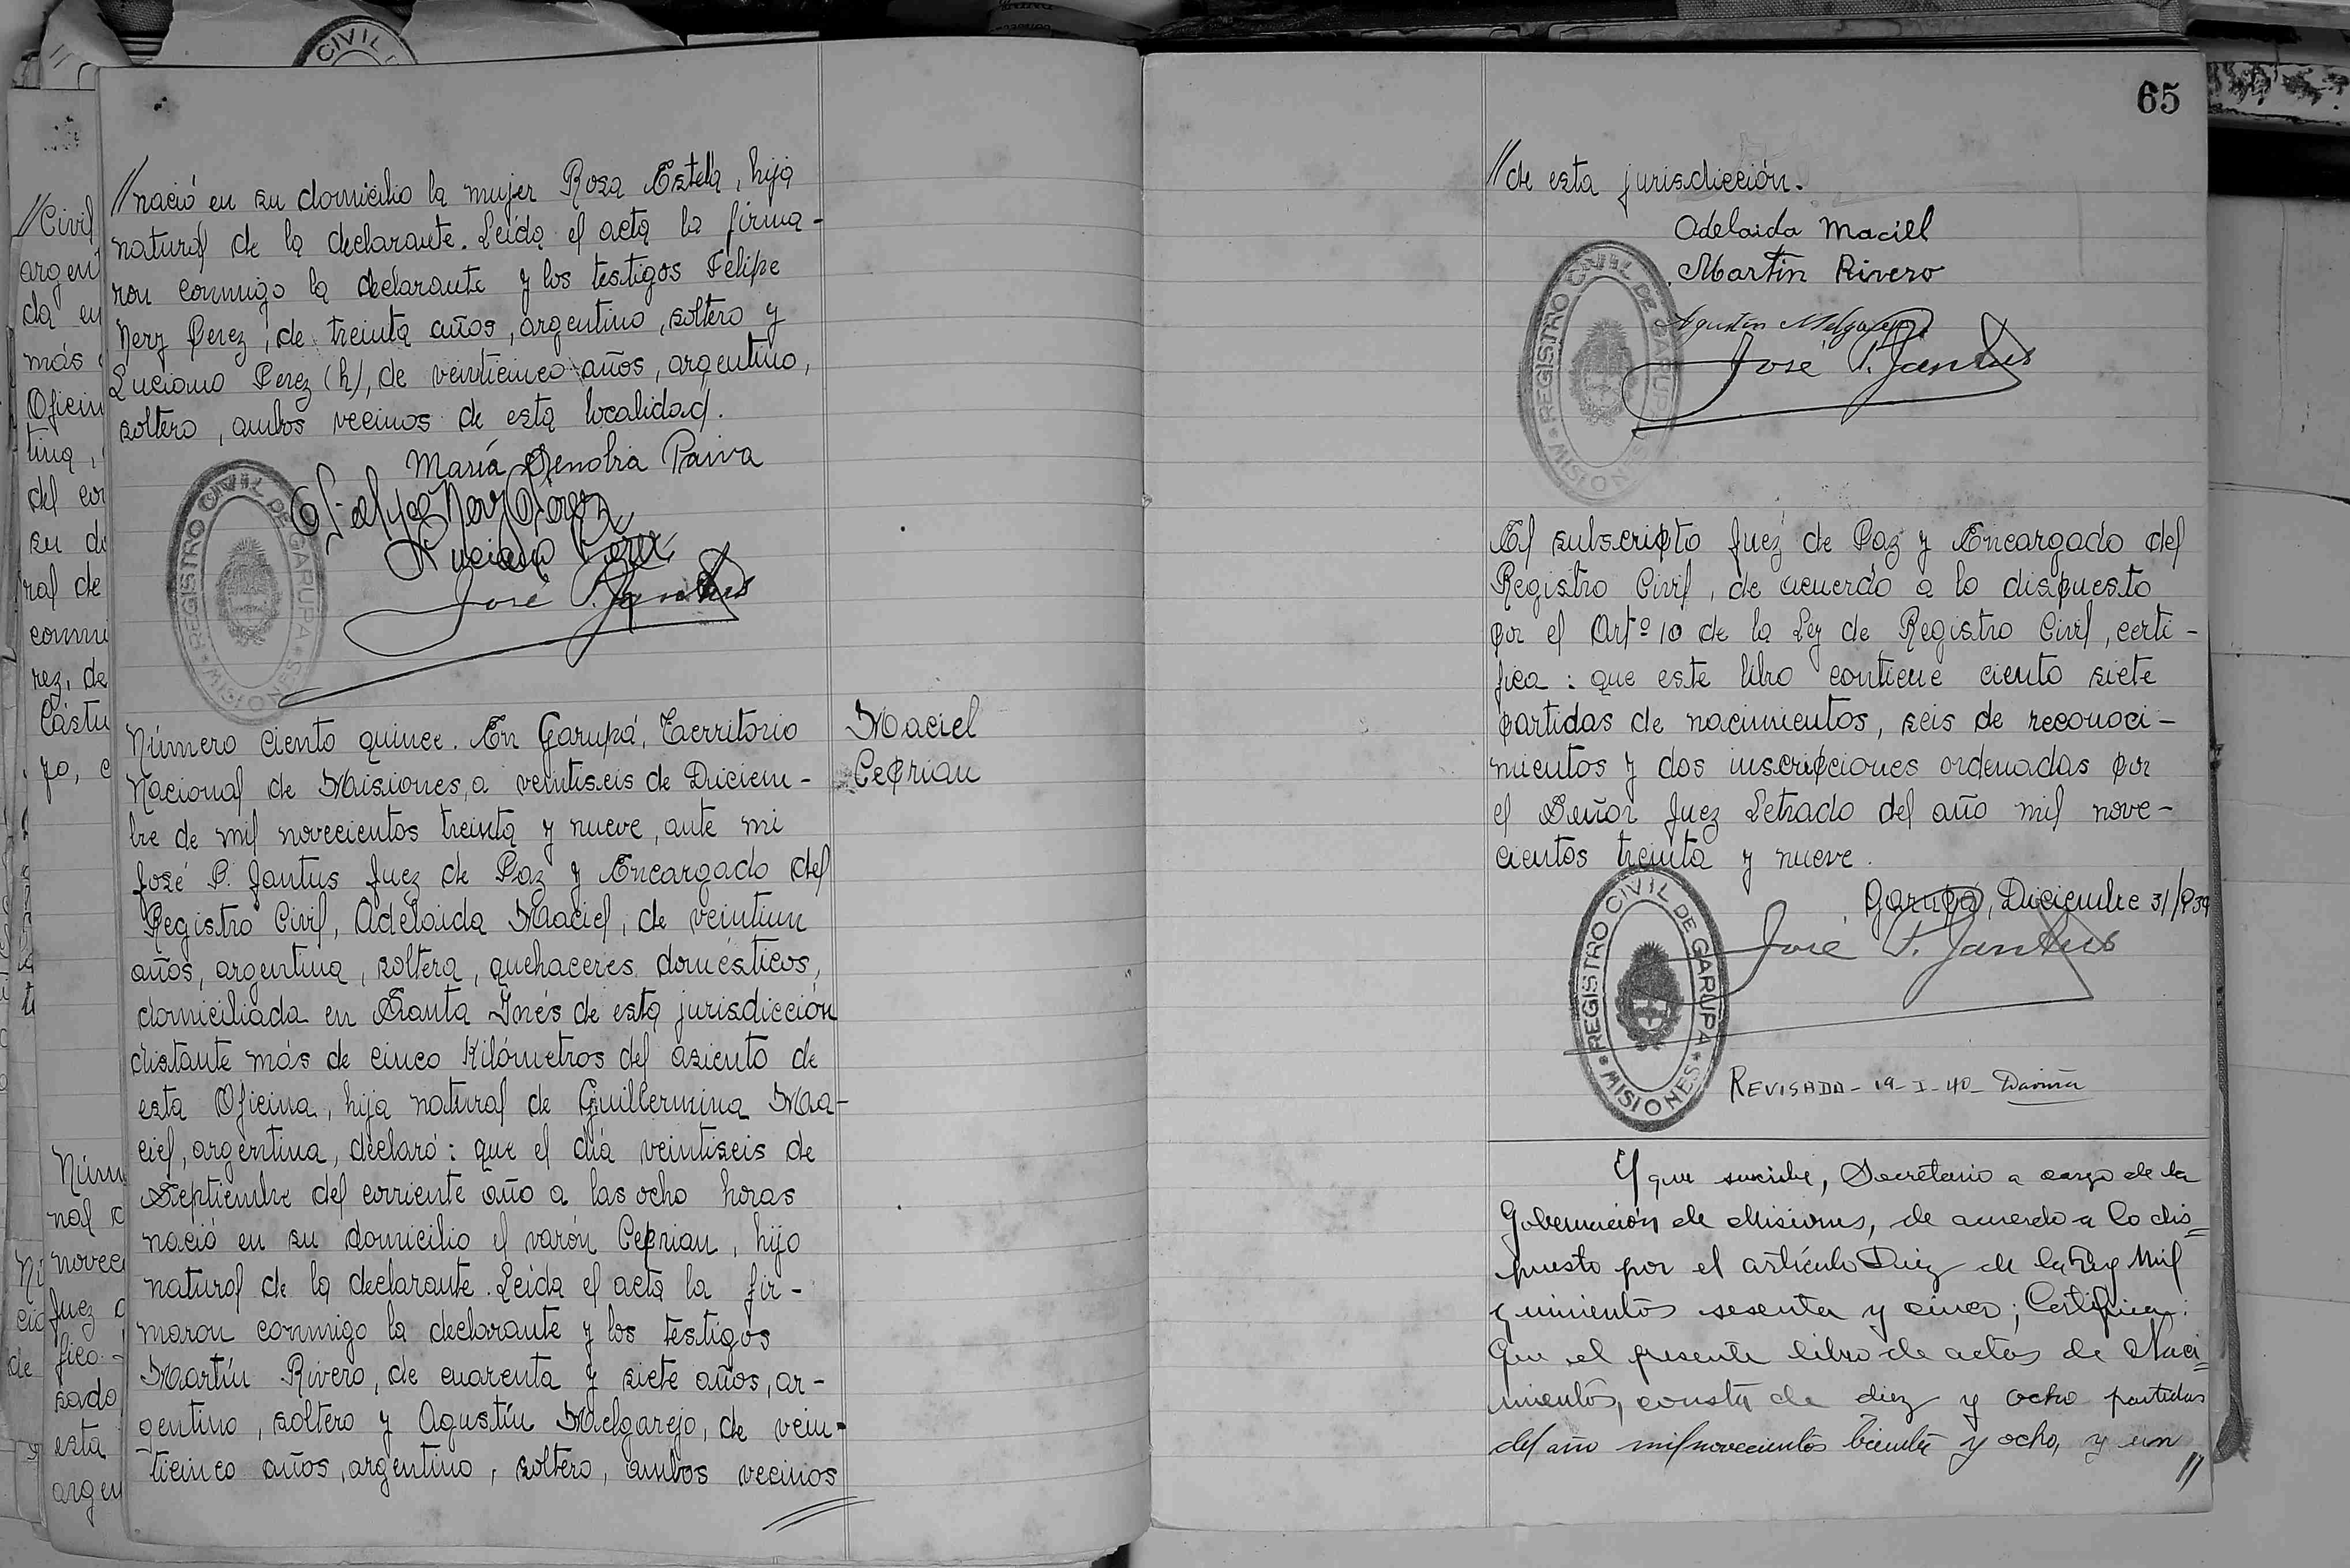 //nació en su domicilio la mujer Rosa Estela, hija
natural de la declarante. Leída el acta la firma-
ron conmigo la declarante y los testigos Felipe
Nery Perez, de treinta años, argentino, soltero y
Luciano Perez (h), de veinticinco años, argentino,
soltero, ambos vecinos de esta localidad.
María Senobia Paiva
Felipe Nery Perez
Luciano Perez
José P. Jantus
REGISTRO CIVIL DE GARUPA
MISIONES
Número ciento quince. En Garupá, Territorio
Nacional de Misiones, a veintiseis de Diciem-
bre de mil novecientos treinta y nueve, ante mi
José P. Jantus Juez de Paz y Encargado del
Registro Civil, Adelaida Maciel, de veintiun
años, argentina, soltera, quehaceres domésticos,
domiciliada en Santa Inés de esta jurisdicción
distante más de cinco Kilómetros del asiento de
esta Oficina, hija natural de Guillermina Ma-
ciel, argentina, declaró: que el día veintiseis de
Septiembre del corriente año a las ocho horas
nació en su domicilio el varón Ceprian, hijo
natural de la declarante. Leida el acta la fir-
maron conmigo la declarante y los testigos
Martín Rivero, de cuarenta y siete años, ar-
gentino, soltero y Agustín Melgarejo, de vein-
ticinco años, argentino, soltero, ambos vecinos
Maciel
Ceprian
65
//de esta jurisdicción.
Adelaida Maciel
Martín Rivero
Agustin Melgarejo
José P. Jantus
REGISTRO CIVIL DE GARUPA
MISIONES
El subscripto Juez de Paz y Encargado del
Registro Civil, de acuerdo a lo dispuesto
por el Artº 10 de la Ley de Registro Civil, certi-
fica: que este libro contiene ciento siete
partidas de nacimientos, seis de reconoci-
mientos y dos inscripciones ordenadas por
el Señor Juez Letrado del año mil nove-
cientos treinta y nueve.
Garupá, Diciembre 31/939
José P. Jantus
REGISTRO CIVIL DE GARUPA
MISIONES
REVISADO - 19-I-40-
El que suscribe, Secretario a cargo de la
Gobernación de Misiones, de acuerdo a lo dis=
puesto por el artículo Diez de la Ley Mil
quinientos sesenta y cinco; Certifica:
Que el presente libro de actas de Naci=
mientos, consta de diez y ocho partidas
del año mil novecientos treinta y ocho, y un
//